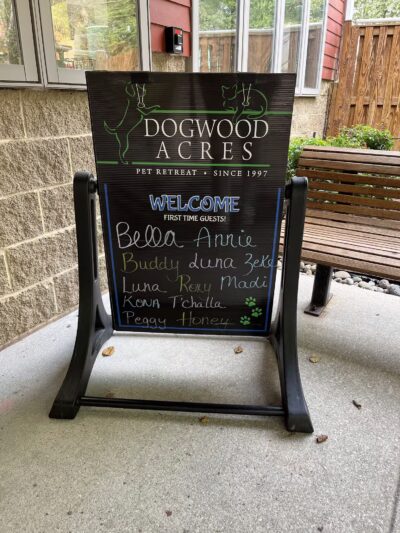 DOGWOOD
ACRES
PET RETREAT • SINCE 1997
WELCOME
FIRST TIME GUESTS!
Bella Annie
Buddy Luna Zeke
Luna Roxy Madi
Kona T'challa
Peggy Honey